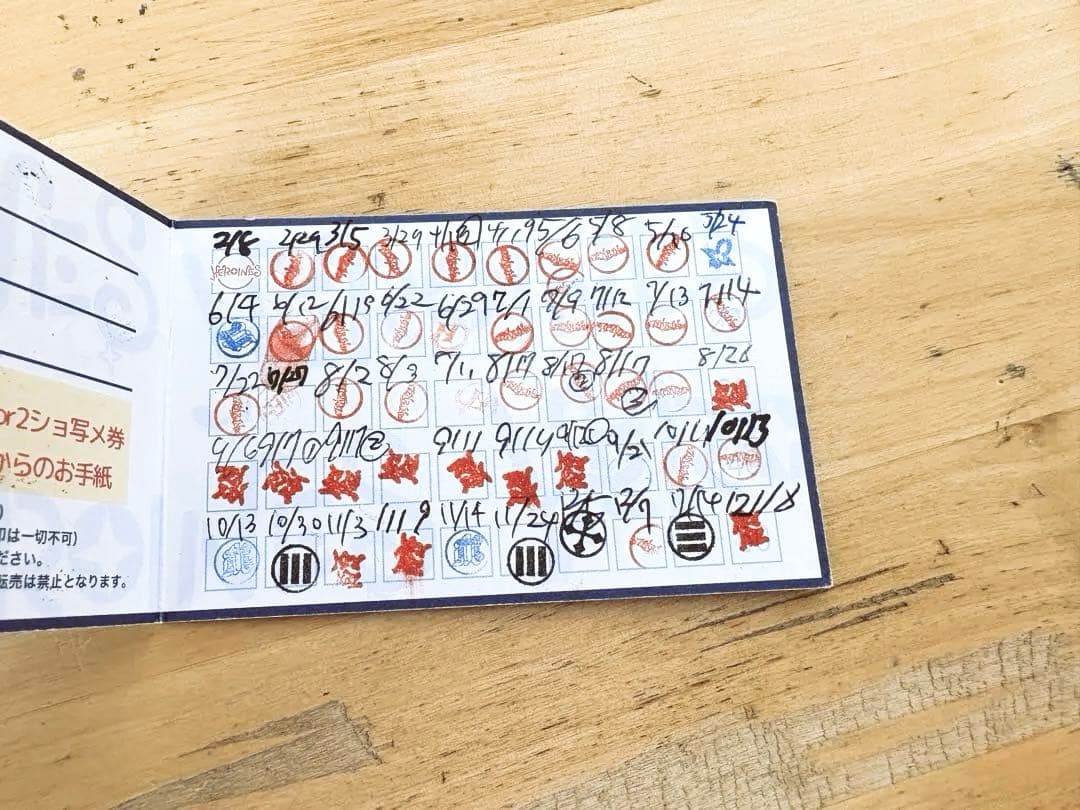 2/8 2/29 3/5 3/29 4/13② 4/19 5/6 5/8 5/16 5/24
HEROINES
6/4 6/12 6/19 6/22 6/29 7/1 7/9 7/12 7/13 7/14
7/22 7/27 8/2 8/3 7/1 8/17 8/17② 8/26
9/6 9/7① 9/17② 9/11 9/14 9/20 10/11 10/13
10/13 10/30 11/3 11/9 11/14 11/24 12/7 12/14 12/18
or2ショ写メ券
からのお手紙
印は一切不可)
ださい。
転売は禁止となります。